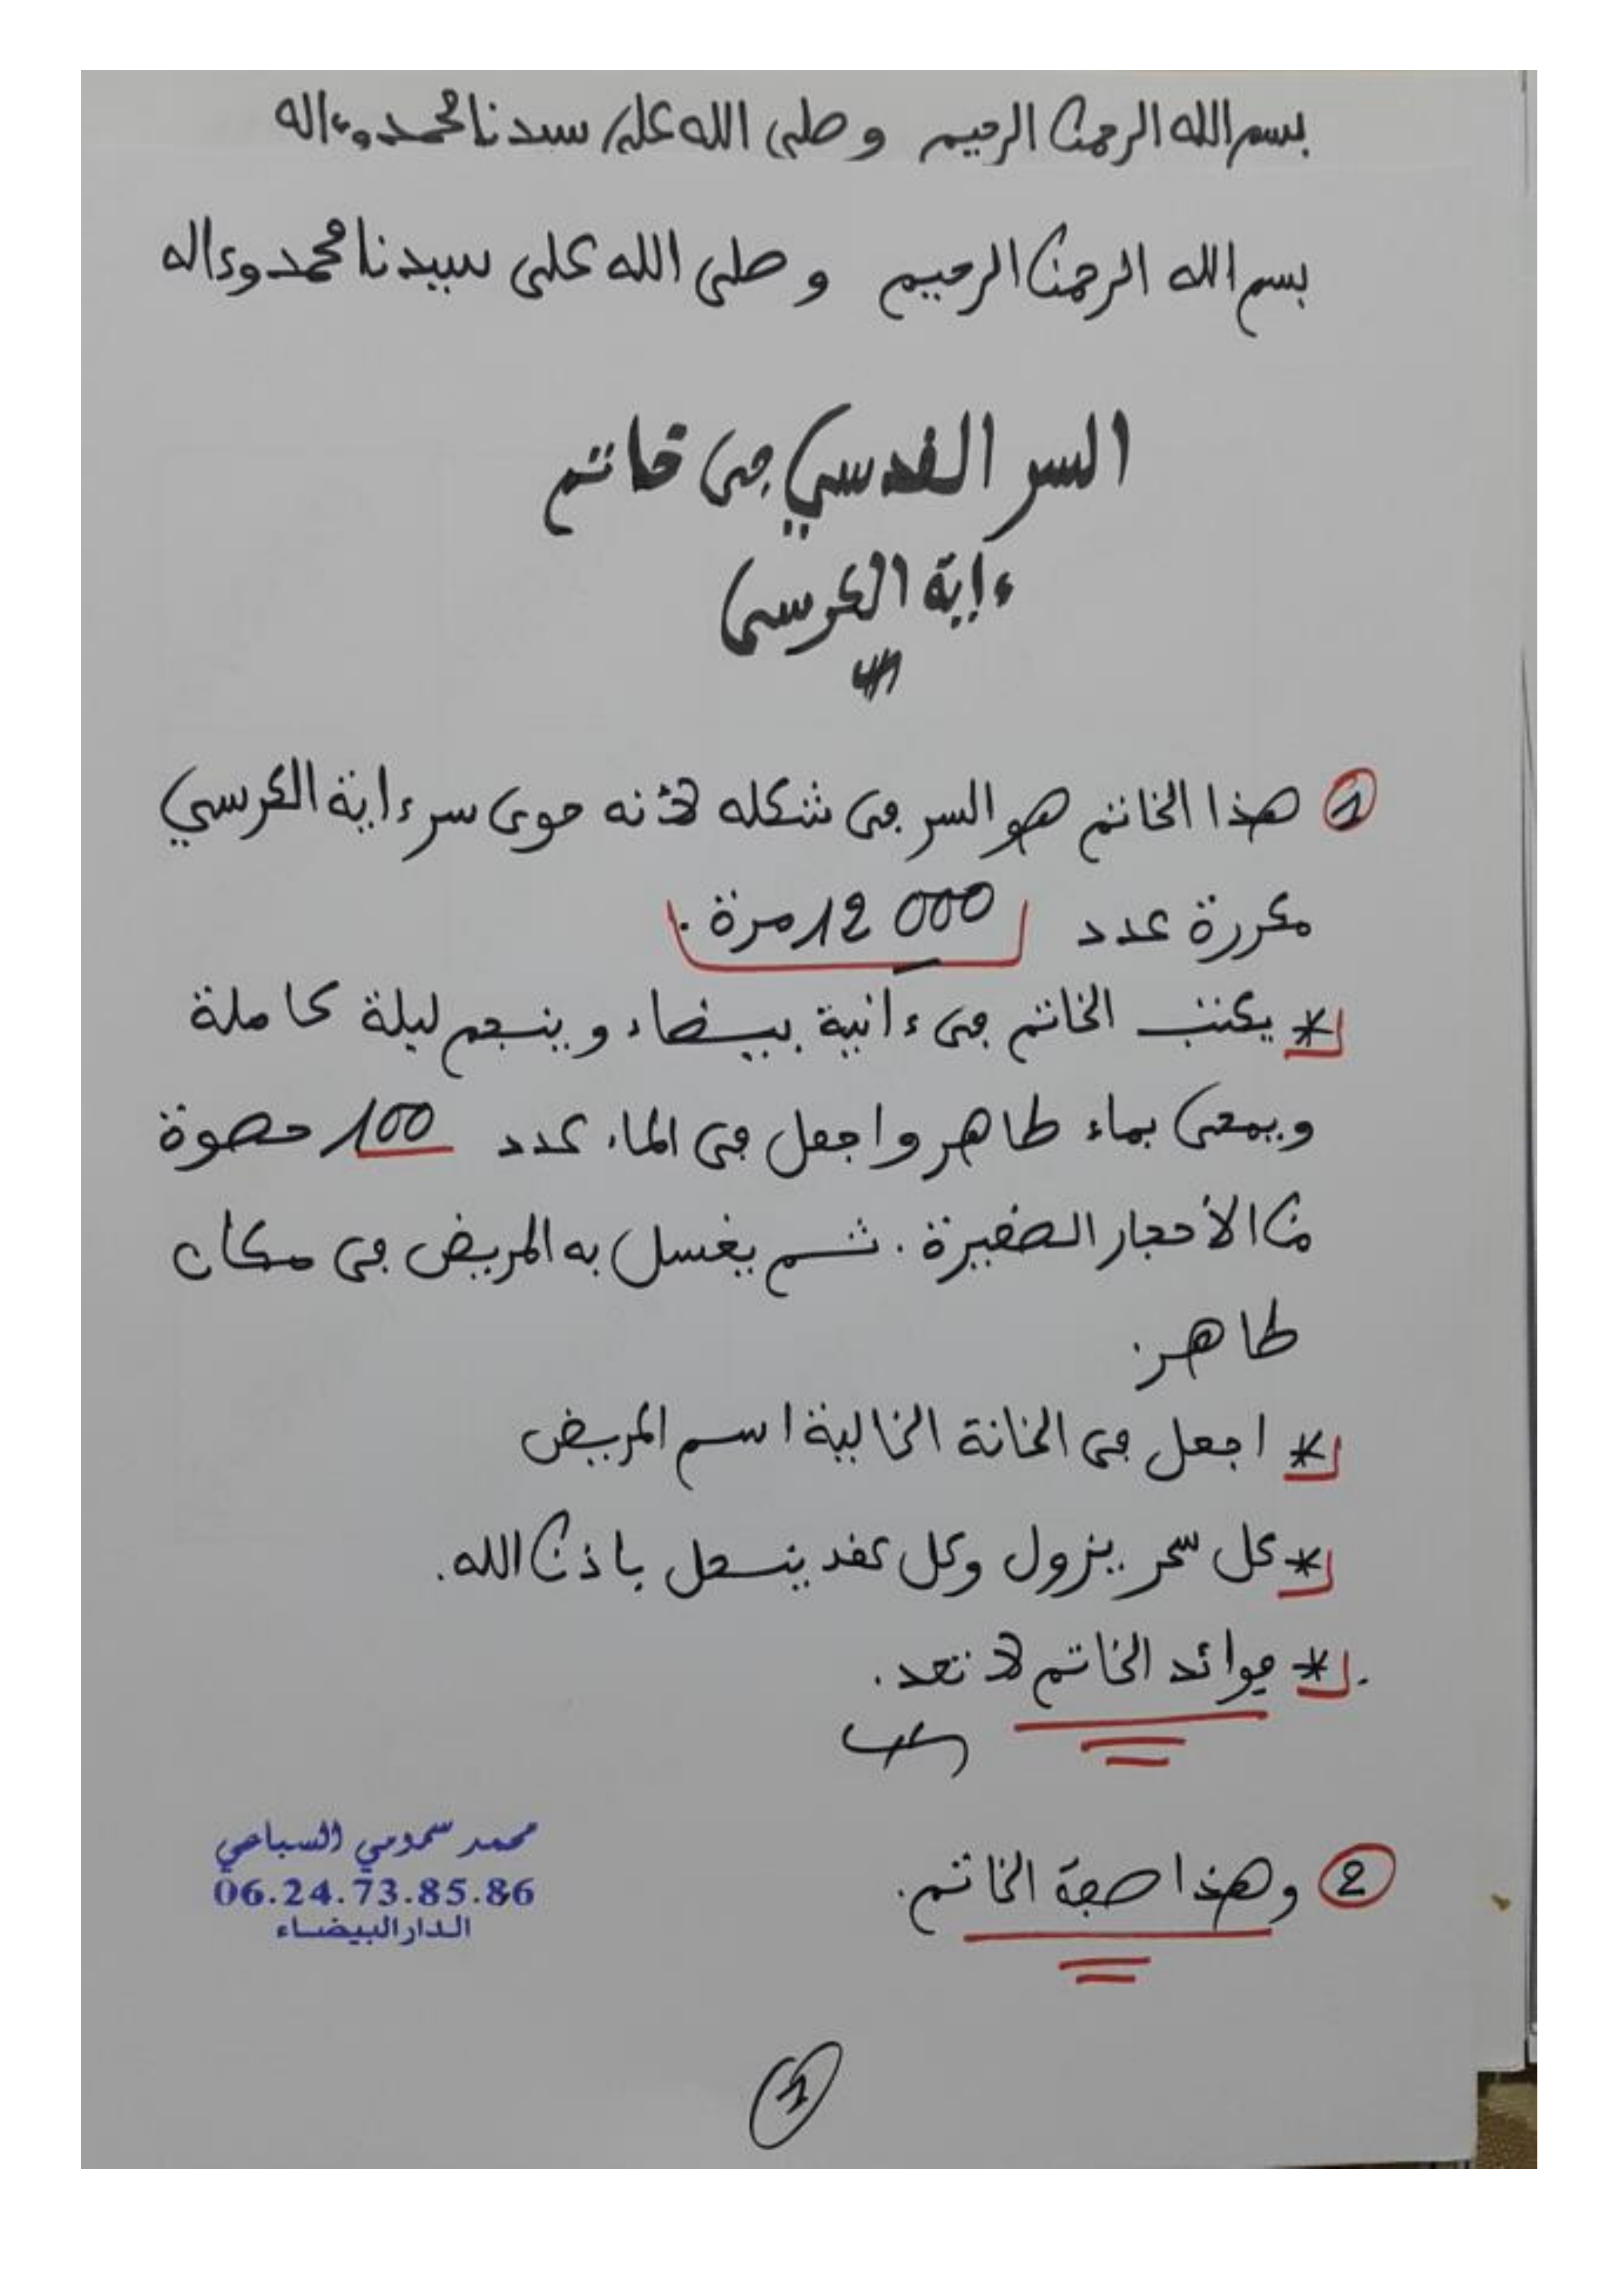 بسم الله الرحمن الرحيم وصلى الله على سيدنا محمد وءاله
بسم الله الرحمن الرحيم وصلى الله على سيدنا محمد وءاله
السر القدسي في خاتم
ءاية الكرسي
1 هذا الخاتم هو السر في شكله لأنه حوى سر ءاية الكرسي
مكررة عدد 12 000 مرة.
* يكتب الخاتم في ءانية بيضاء وينجم ليلة كاملة
ويمحى بماء طاهر واجعل في الماء عدد 100 حصوة
من الأحجار الصغيرة. ثم يغسل به المريض في مكان
طاهر.
* اجعل في الخانة الخالية اسم المريض
* كل سحر يزول وكل عقد ينحل باذن الله.
* فوائد الخاتم لا تعد.
2 وهذا صفة الخاتم.
محمد سمومي السباعي
06.24.73.85.86
الدار البيضاء
1